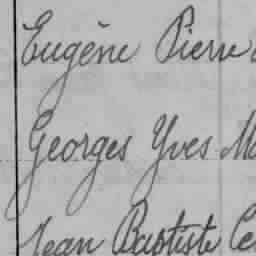 Eugène Pierre
Georges Yves Ma
Jean Baptiste Ce